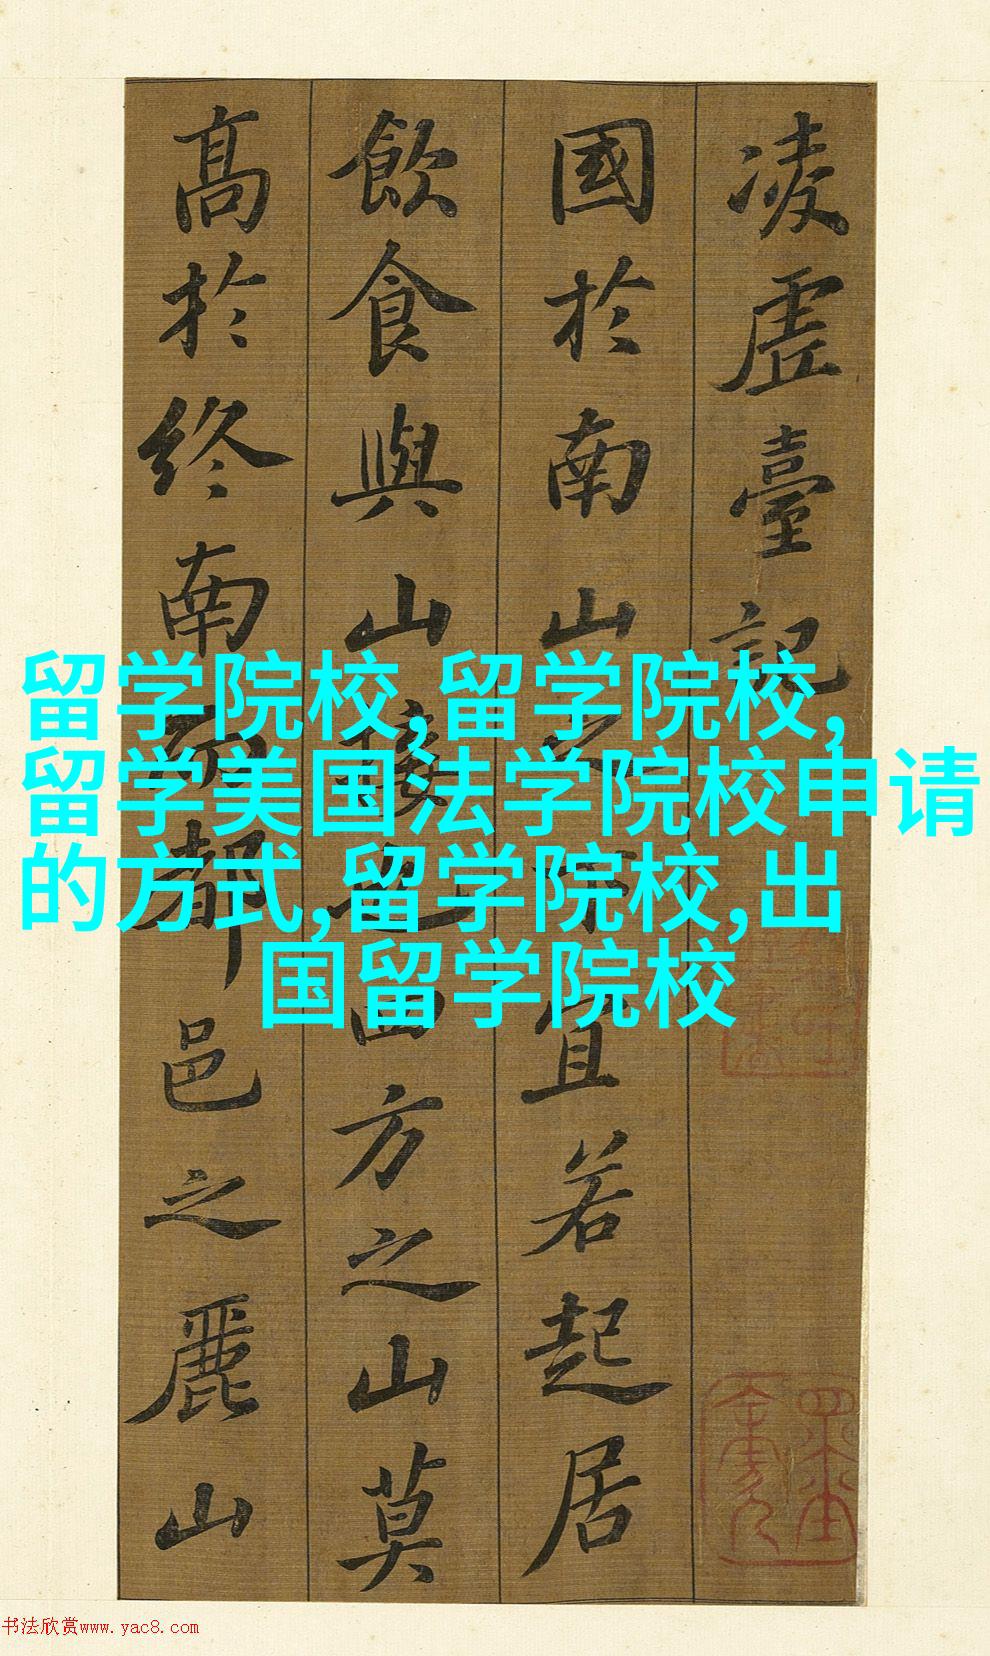 凌虛臺記
國於南山之下宜若起居
飲食與山接也四方之山莫
高於終南而都邑之麗山
留学院校,留学院校,
留学美国法学院校申请
的方式,留学院校,出
国留学院校
书法欣赏www.yac8.com